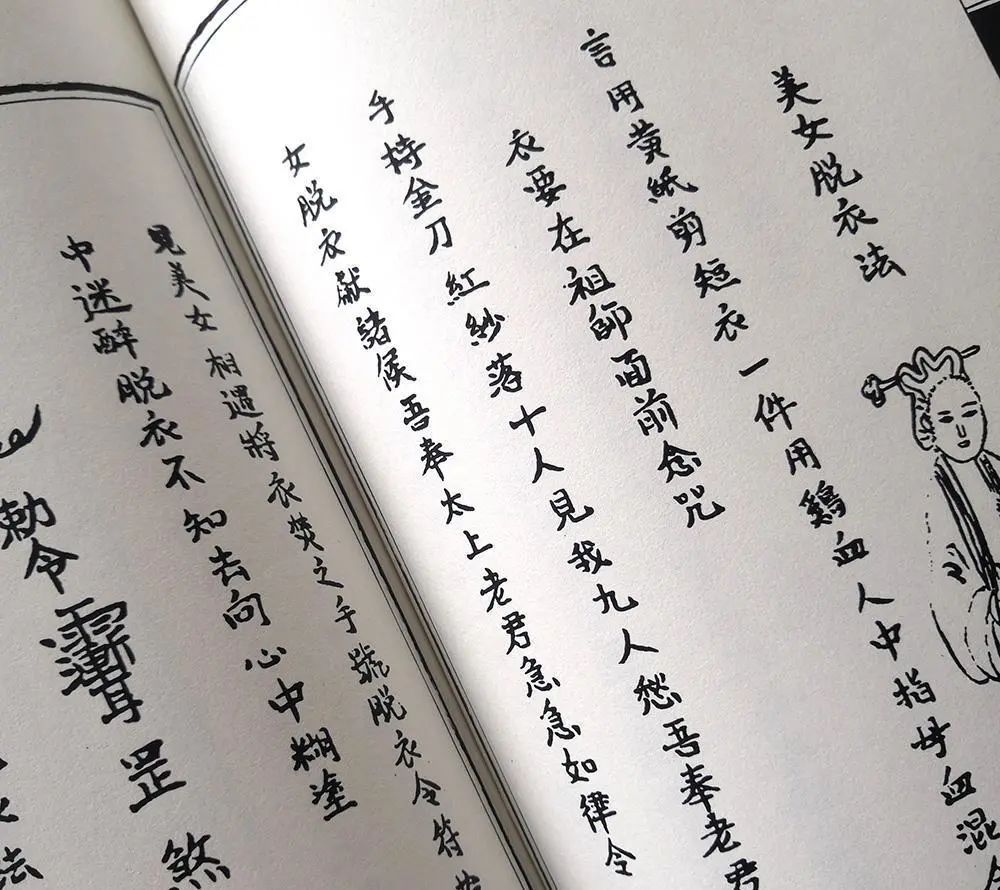 美女脱衣法
言用黄紙剪短衣一件用鷄血人中指母血混
衣要在祖師面前念咒
手持金刀紅紗落十人見我九人愁吾奉老君
女脱衣獻諸侯吾奉太上老君急急如律令
見美女相遇將衣焚之手號脱衣令符
中迷醉脱衣不知去向心中糊塗
勅令罡煞
法